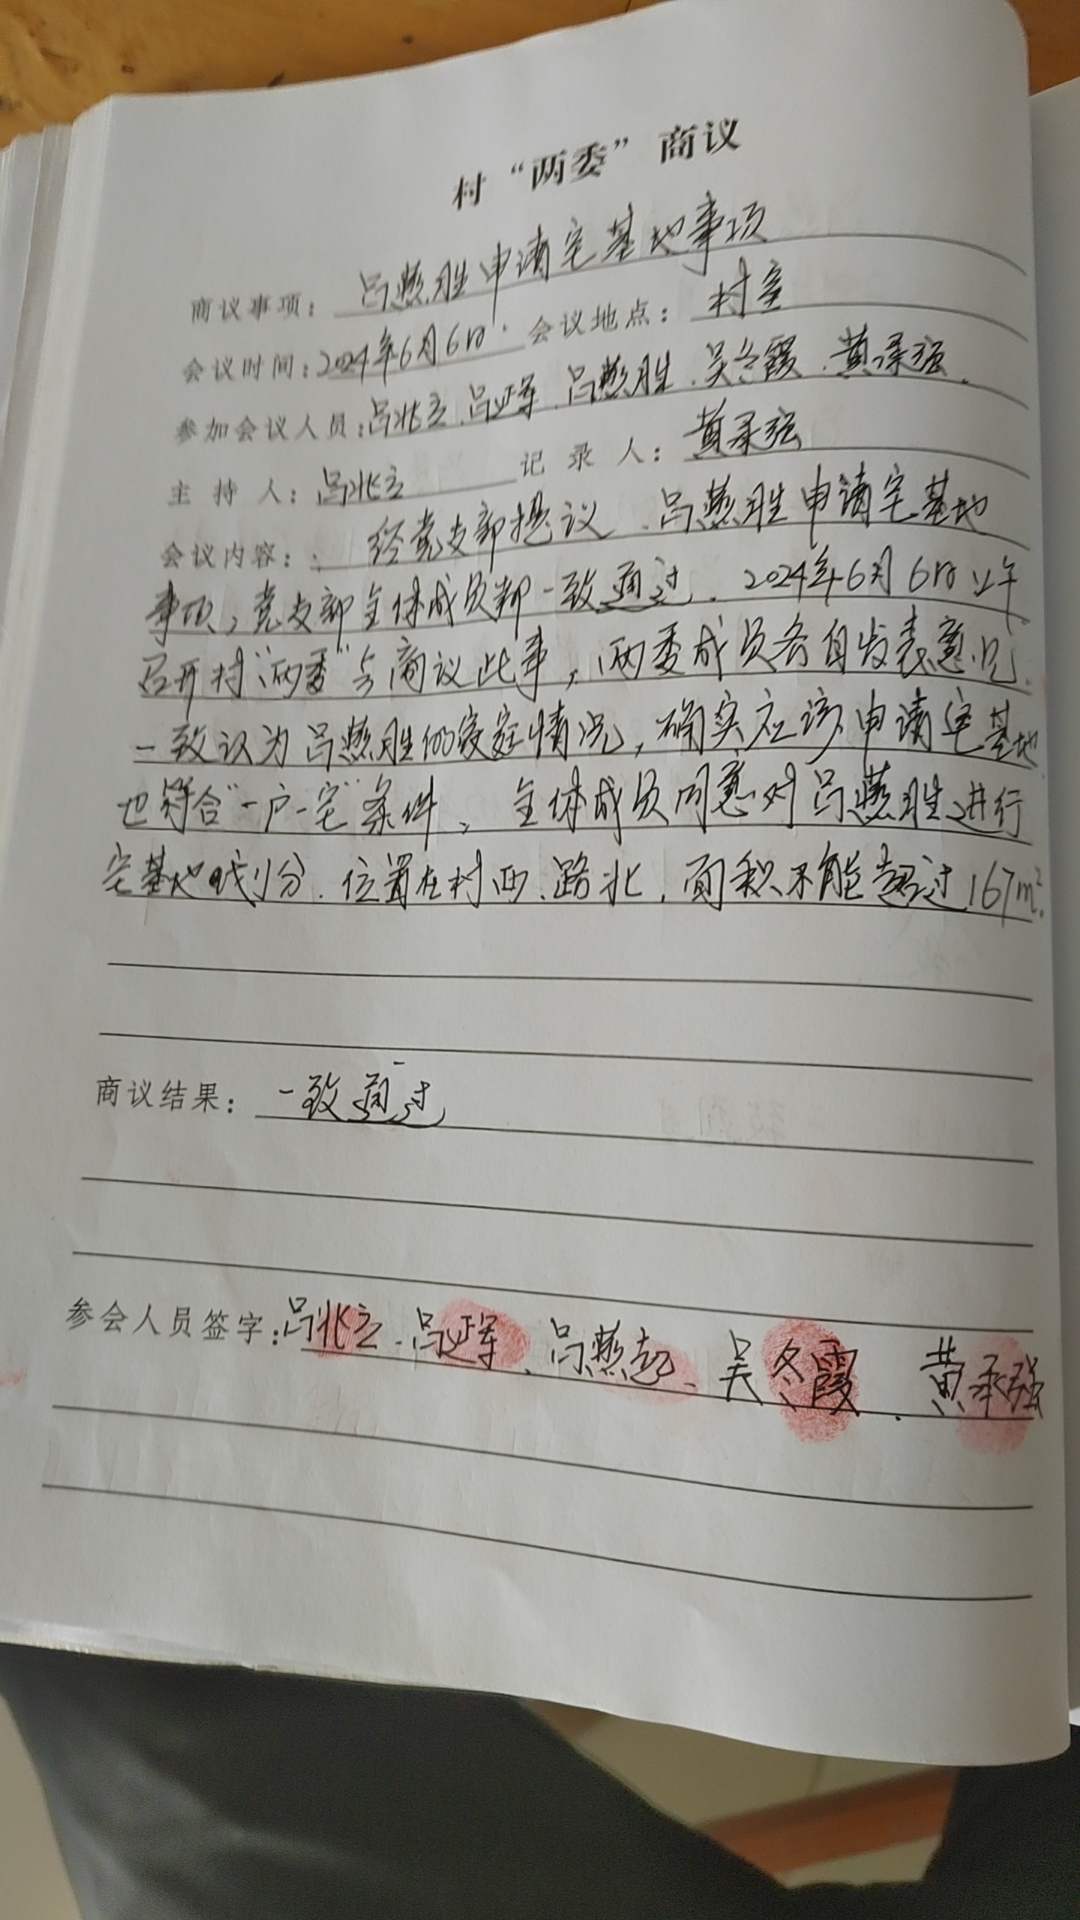 村“两委”商议
商议事项：吕燕胜申请宅基地事项
会议时间：2024年6月6日 会议地点：村室
参加会议人员：吕兆立、吕延军、吕燕胜、吴冬霞、黄承强、
主持人：吕兆立 记录人：黄承强
会议内容：经党支部提议、吕燕胜申请宅基地
事项，党支部全体成员都一致通过、2024年6月6日上午
召开村“两委”会商议此事，两委成员各自发表意见、
一致认为吕燕胜的家庭情况，确实应该申请宅基地、
也符合“一户一宅”条件，全体成员同意对吕燕胜进行
宅基地划分、位置在村西、路北，面积不能超过167m²。
商议结果：一致通过
参会人员签字：吕兆立、吕延军、吕燕起、吴冬霞、黄承强